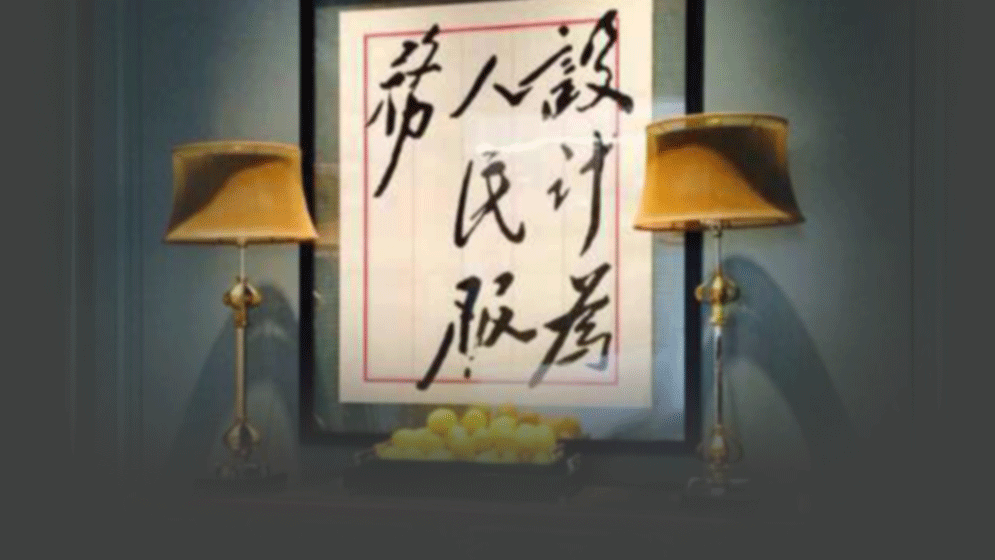 設計為
人民服
務